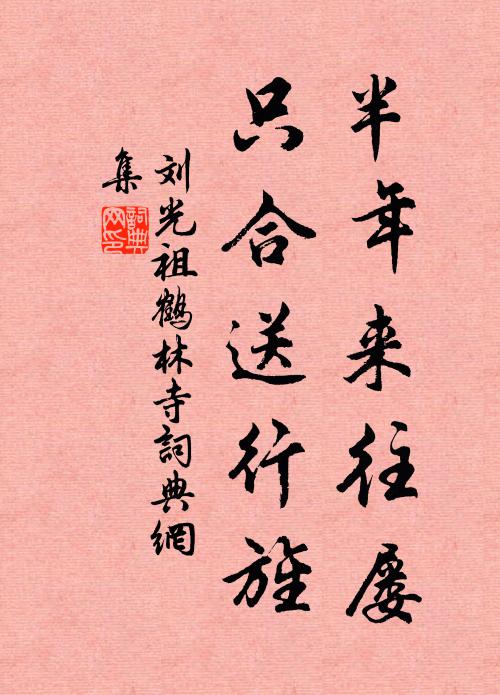 半年来往屡
只合送行旌
刘光祖鹤林寺詞典網
集
詞典网印